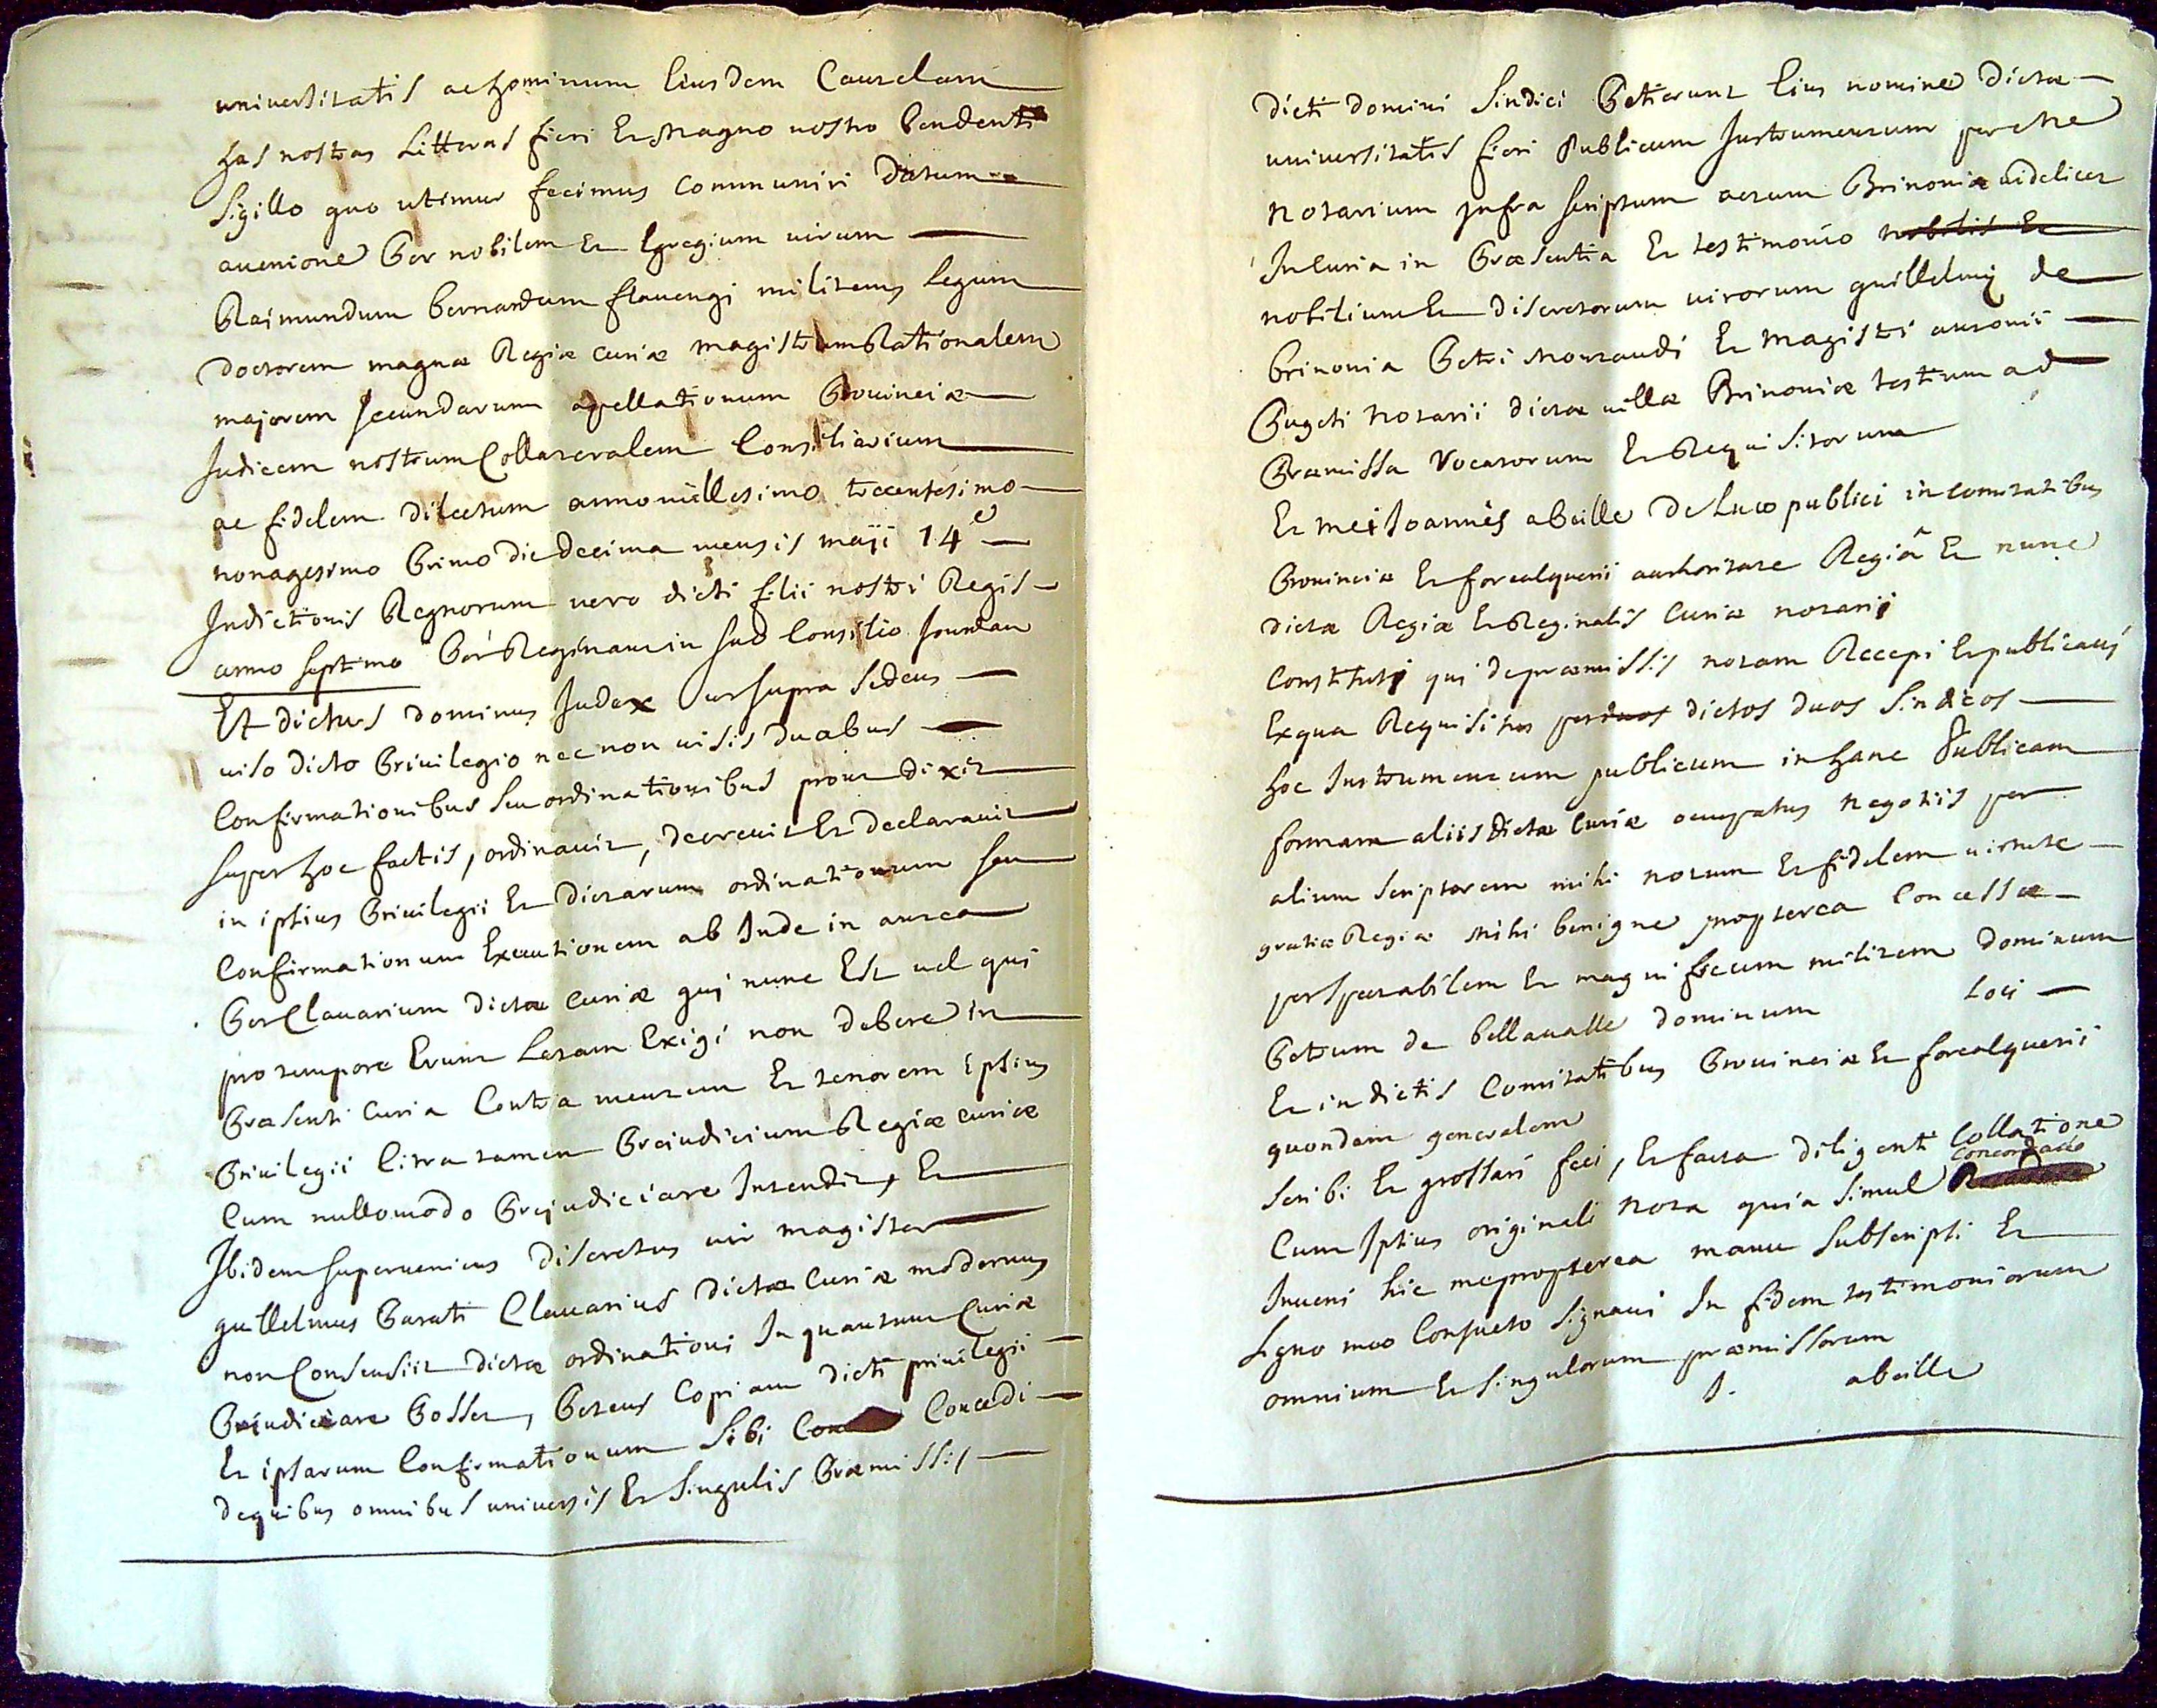 universitatis ac hominum Eiusdem Cautelam
has nostras Litteras fieri Et Magno nostro Pendenti
Sigillo quo utimur fecimus communiri Datum
avenione Per nobilem Et Egregium virum
Raimundum Bernardum flamengi militem Legum
Doctorem magnæ Regiæ curiæ magistrum Rationalem
majorem secundarum apellationum Provinciæ
Judicem nostrum Collateralem Consiliarium
ac fidelem dilectum anno millesimo trecentesimo
nonagesimo Primo die Decima mensis maji 14e
Indictionis Regnorum vero dicti filii nostri Regis
anno septimo Per Reginam in suo Consilio
Et dictus Dominus Judex ut supra Sedens
viso dicto Privilegio nec non visis duabus
Confirmationibus seu ordinationibus prout dixit
super hoc factis, ordinavit, decrevit Et declaravit
in ipsius Privilegii Et Dictarum ordinationum seu
Confirmationum Executionem ab Inde in antea
Per Clavarium dictæ curiæ qui nunc Est vel qui
pro tempore Erunt Latam Exigi non debere in
Præsenti Curia Contra mentem Et tenorem Ipsius
Privilegii Citra tamen Prejudicium Regiæ curiæ
Cum nullomodo Prejudiciare Intendit, Et
Ibidem superveniens Discretus vir magister
guillelmus Barati Clavarius dictæ Curiæ modernus
non Consensiit dictæ ordinationi In quantum Curiæ
Prejudiciare Posset, Petens Copiam dicti privilegii
Et ipsarum Confirmationum Sibi Con Concedi
de quibus omnibus universis Et Singulis Præmissis
Dicti Domini Sindici Petierunt Eius nomine Dictæ
universitatis fieri Publicum Instrumentum per me
Notarium Infra scriptum actum Brinoniæ videlicet
In Curia in Præsentia Et testimonio nobilis Et
nobilium Et Discretorum virorum guillelmi de
Brinonia Petri Montaudi Et Magistri antonii
Pugeti Notarii dictæ villæ Brinoniæ testium ad
Præmissa Vocatorum Et Requisitorum
Et mei Joannes abeille De Luco publici in comitatibus
Provinciæ Et forcalquerii authoritate Regiâ Et nunc
dictæ Regiæ Et Reginalis Curiæ notarii
Constituti qui de præmissis notam Recepi Et publicavi
Ex qua Requisitus per duos dictos duos Sindicos
hoc Instrumentum publicum in hanc Publicam
formam aliis dictæ Curiæ occupatus Negotiis per
alium Scriptorem mihi notum Et fidelem virtute
gratiæ Regiæ Mihi benigne propterea Concessæ
per Spectabilem Et magnificum militem Dominum
Petrum de Bellavalle Dominum Loci
Et in dictis Comitatibus Provinciæ Et forcalquerii
quondam generalem
Scribi Et grossari feci, Et facta diligenti Collatione
Cum Ipsius originali Nota quia Simul concordare
Inveni hic me propterea manu Subscripsi Et
Signo meo Consueto Signavi In fidem testimoniorum
omnium Et Singulorum præmissorum
J. abeille